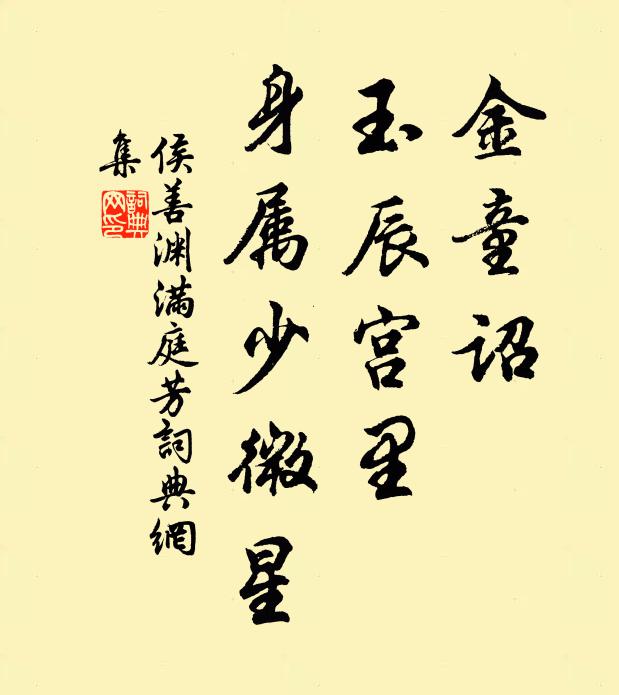 金童诏
玉辰宫里
身属少微星
侯善渊满庭芳詞典網
集
詞典网印